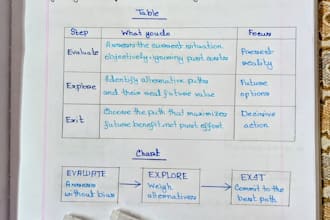 Table
Step What you do Focus
Evaluate Assess the current situation Present
objectively, ignoring past costs reality
Explore Identify alternative paths Future
and their real future value options
Exit Choose the path that maximizes Decisive
future benefit, not past effort action
Chart
EVALUATE EXPLORE EXIT
Assess Weigh Commit to the
without bias alternatives best path